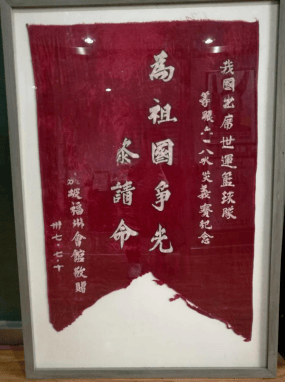 我國出席世運籃球隊
等聯六一八水災義賽紀念
為祖國爭光
請命
坡福州會館敬贈
卅七·七·十